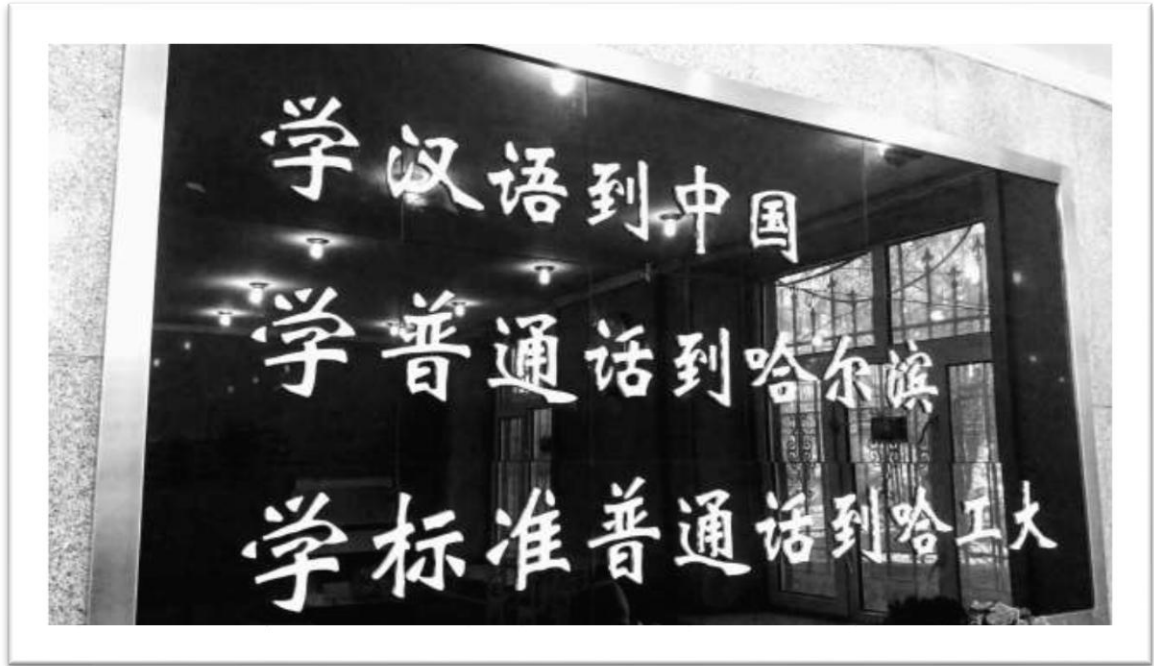 学汉语到中国
学普通话到哈尔滨
学标准普通话到哈工大